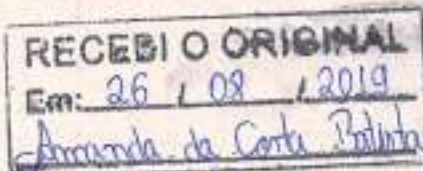 RECEBI O ORIGINAL
Em: 26 / 08 / 2019
Amanda da Costa Batista